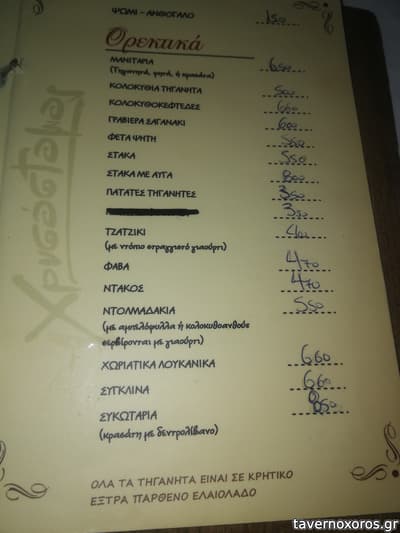 ΨΩΜΙ - ΑΝΘΟΓΑΛΟ 1,50
Ορεκτικά
ΜΑΝΙΤΑΡΙΑ 6,50
(Τηγανητά, ψητά, ή κρασάτα)
ΚΟΛΟΚΥΘΙΑ ΤΗΓΑΝΗΤΑ
ΚΟΛΟΚΥΘΟΚΕΦΤΕΔΕΣ
ΓΡΑΒΙΕΡΑ ΣΑΓΑΝΑΚΙ 6,00
ΦΕΤΑ ΨΗΤΗ
ΣΤΑΚΑ 5,50
ΣΤΑΚΑ ΜΕ ΑΥΓΑ 8,00
ΠΑΤΑΤΕΣ ΤΗΓΑΝΗΤΕΣ 3,50
ΤΖΑΤΖΙΚΙ
(με ντόπιο στραγγιστό γιαούρτι)
ΦΑΒΑ 4,70
ΝΤΑΚΟΣ 4,70
ΝΤΟΛΜΑΔΑΚΙΑ 5,50
(με αμπελόφυλλα ή κολοκυθοανθούς
σερβίρονται με γιαούρτι)
ΧΩΡΙΑΤΙΚΑ ΛΟΥΚΑΝΙΚΑ 6,60
ΣΥΓΚΛΙΝΑ 6,60
ΣΥΚΩΤΑΡΙΑ
(κρασάτη με δεντρολίβανο)
ΟΛΑ ΤΑ ΤΗΓΑΝΗΤΑ ΕΙΝΑΙ ΣΕ ΚΡΗΤΙΚΟ
ΕΞΤΡΑ ΠΑΡΘΕΝΟ ΕΛΑΙΟΛΑΔΟ
Χρυσόστομος
tavernoxoros.gr